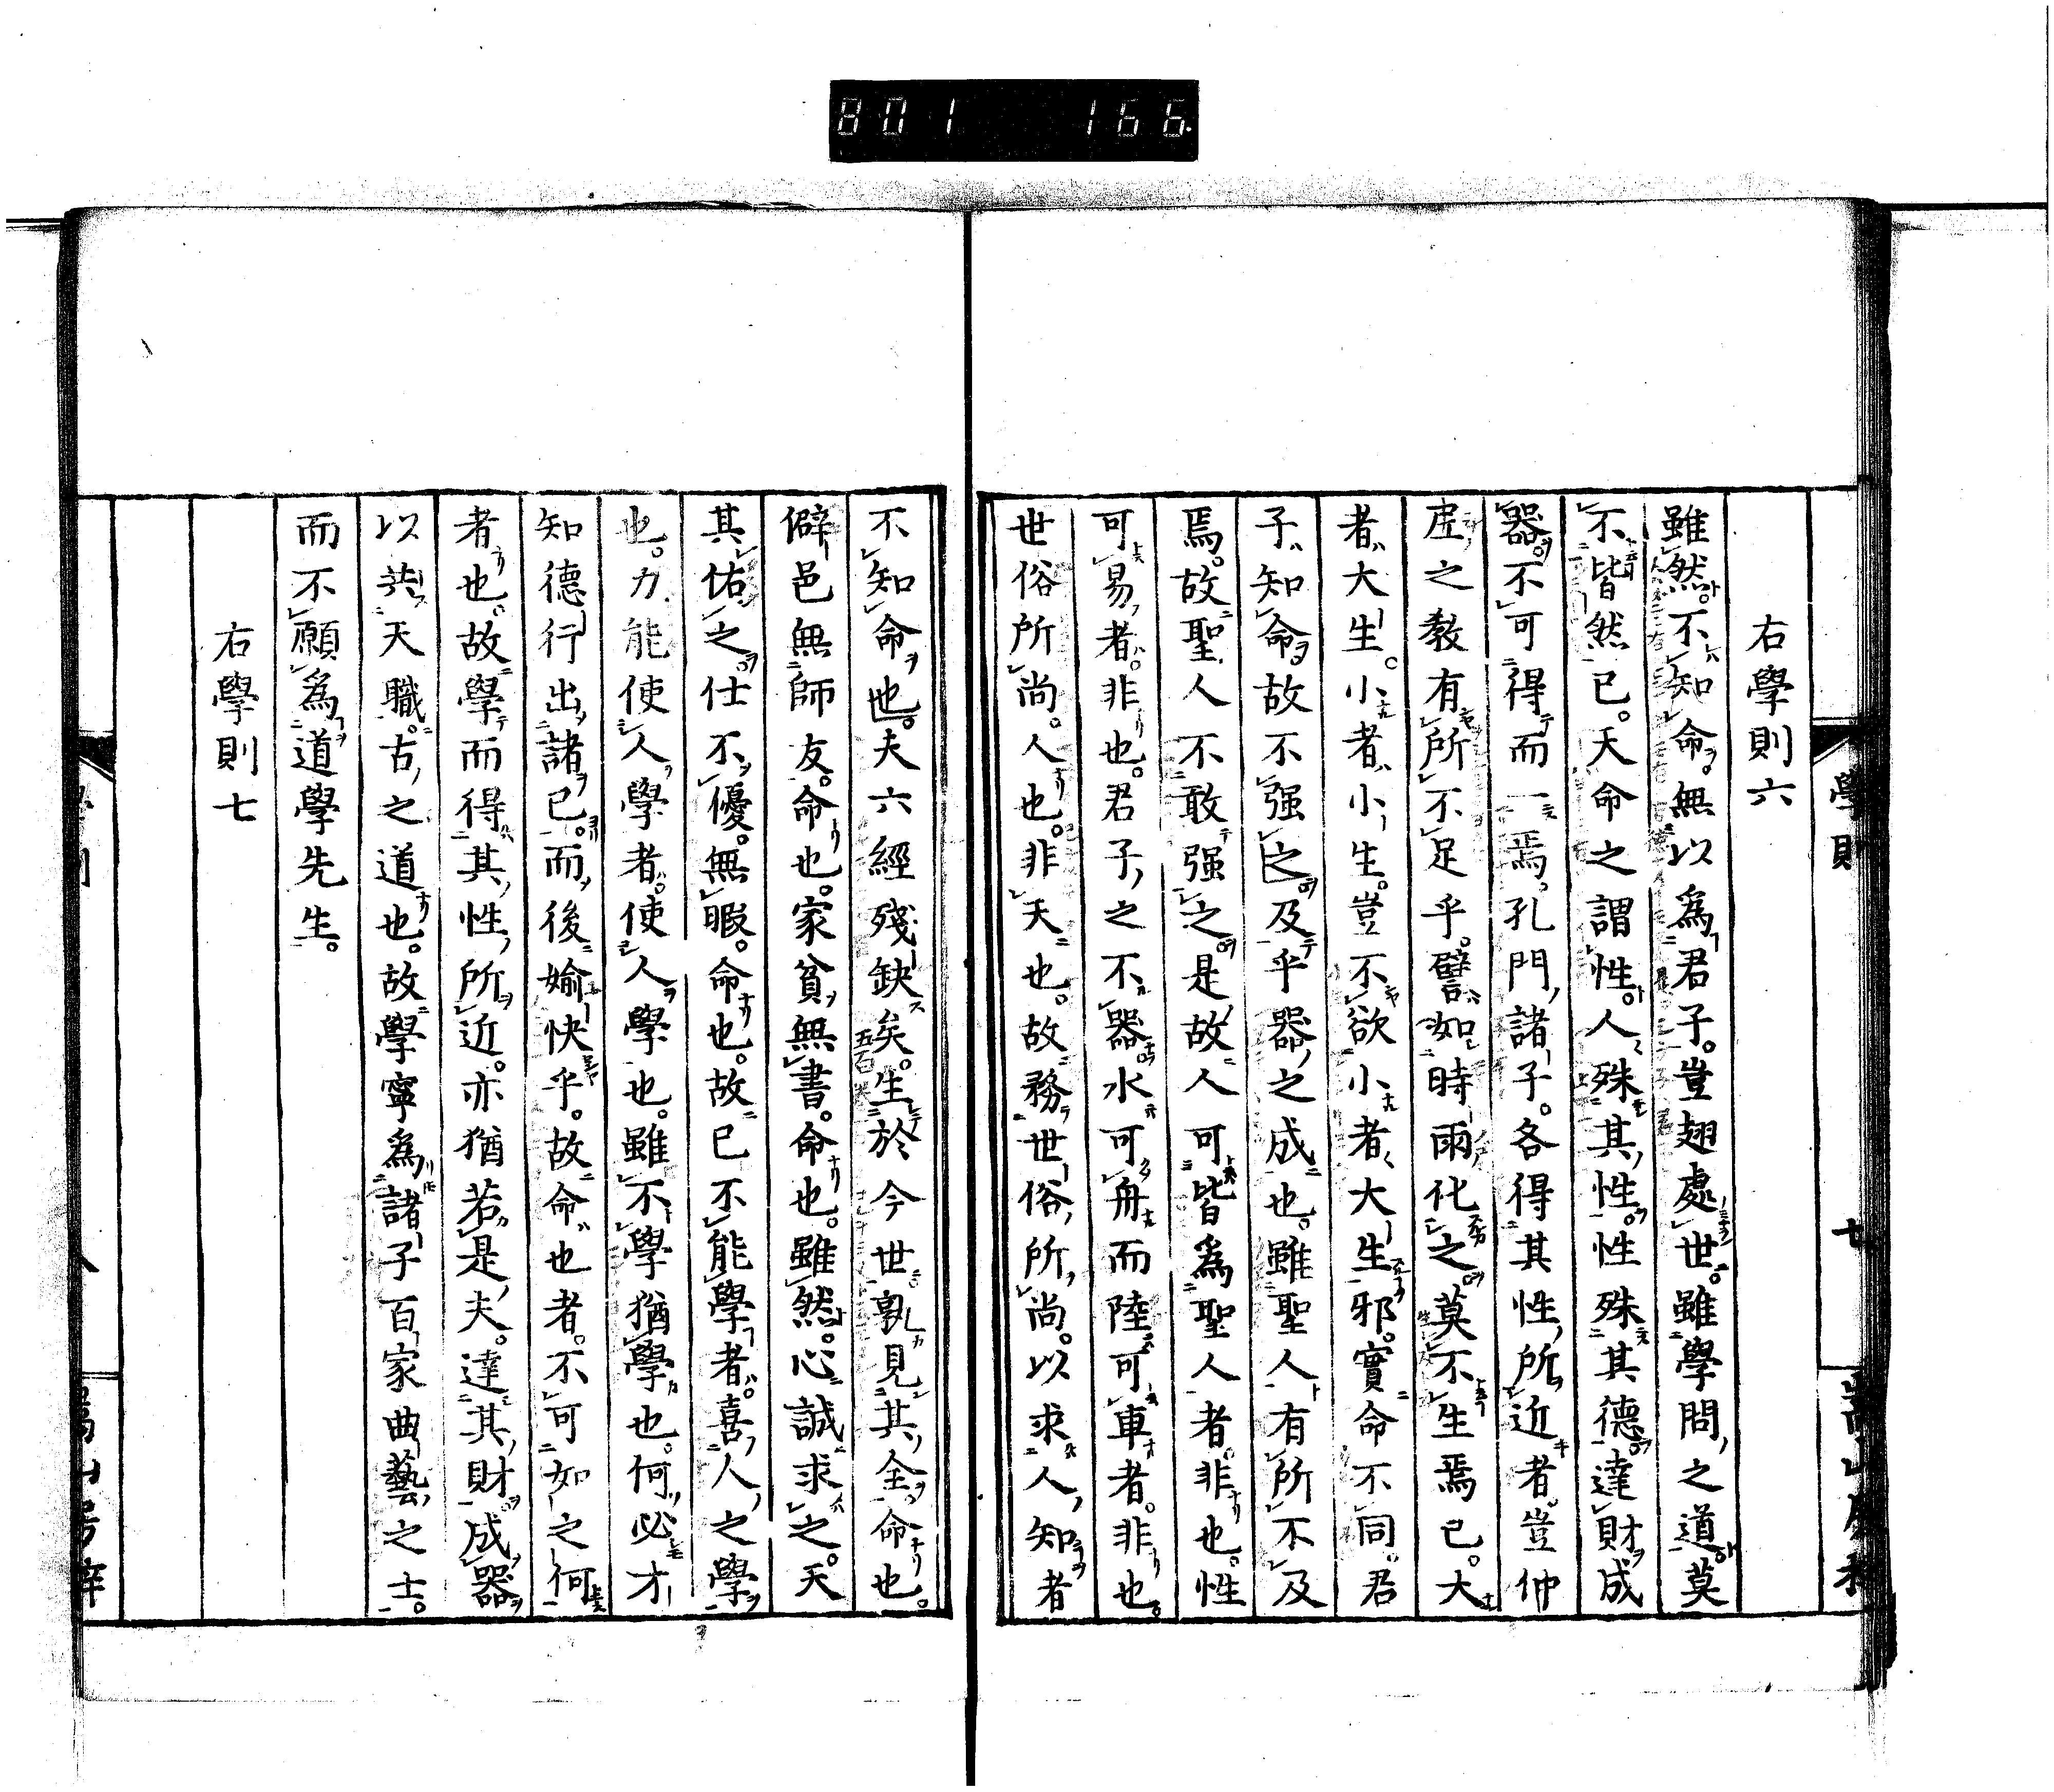 801 166
右學則六
雖然。不知命。無以爲君子。豈翅處世。雖學問之道莫
不皆然已。天命之謂性。人殊其性。性殊其德。達財成
器。不可得而一焉。孔門諸子。各得其性所近者。豈仲
尼之教有所不足乎。譬如時雨化之。莫不生焉已。大
者大生。小者小生。豈不欲小者大生邪。實命不同。君
子知命。故不强之。及乎器之成也。雖聖人有所不及
焉。故聖人不敢强之。是故人可皆爲聖人者。非也。性
可易者。非也。君子之不器。水可舟而陸可車者。非也。
世俗所尚。人也。非天也。故務世俗所尚。以求人知者
不知命也。夫六經殘缺矣。生於今世。孰見其全。命也。
僻邑無師友。命也。家貧無書。命也。雖然。心誠求之。天
其佑之。仕不優。無暇。命也。故已不能學者。喜人之學
也。力能使人學者。使人學也。雖不學猶學也。何必才
知德行出諸己。而後婾快乎。故命也者。不可如之何
者也。故學而得其性所近。亦猶若是夫。達其財成器
以共天職。古之道也。故學寧爲諸子百家曲藝之士。
而不願爲道學先生。
右學則七